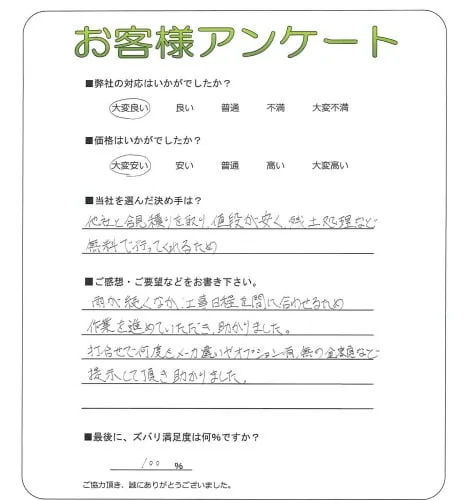 お客様アンケート
■弊社の対応はいかがでしたか？
大変良い 良い 普通 不満 大変不満
■価格はいかがでしたか？
大変安い 安い 普通 高い 大変高い
■当社を選んだ決め手は？
他社と合見積りを取り、値段が安く、残土処理など
無料で行ってくれるため
■ご感想・ご要望などをお書き下さい。
雨が続くなか、工事日程を間に合わせるため
作業を進めていただき、助かりました。
打合せで何度もメーカ違いやオプション有、無の金額など
提示して頂き助かりました。
■最後に、ズバリ満足度は何%ですか？
100 %
ご協力頂き、誠にありがとうございました。